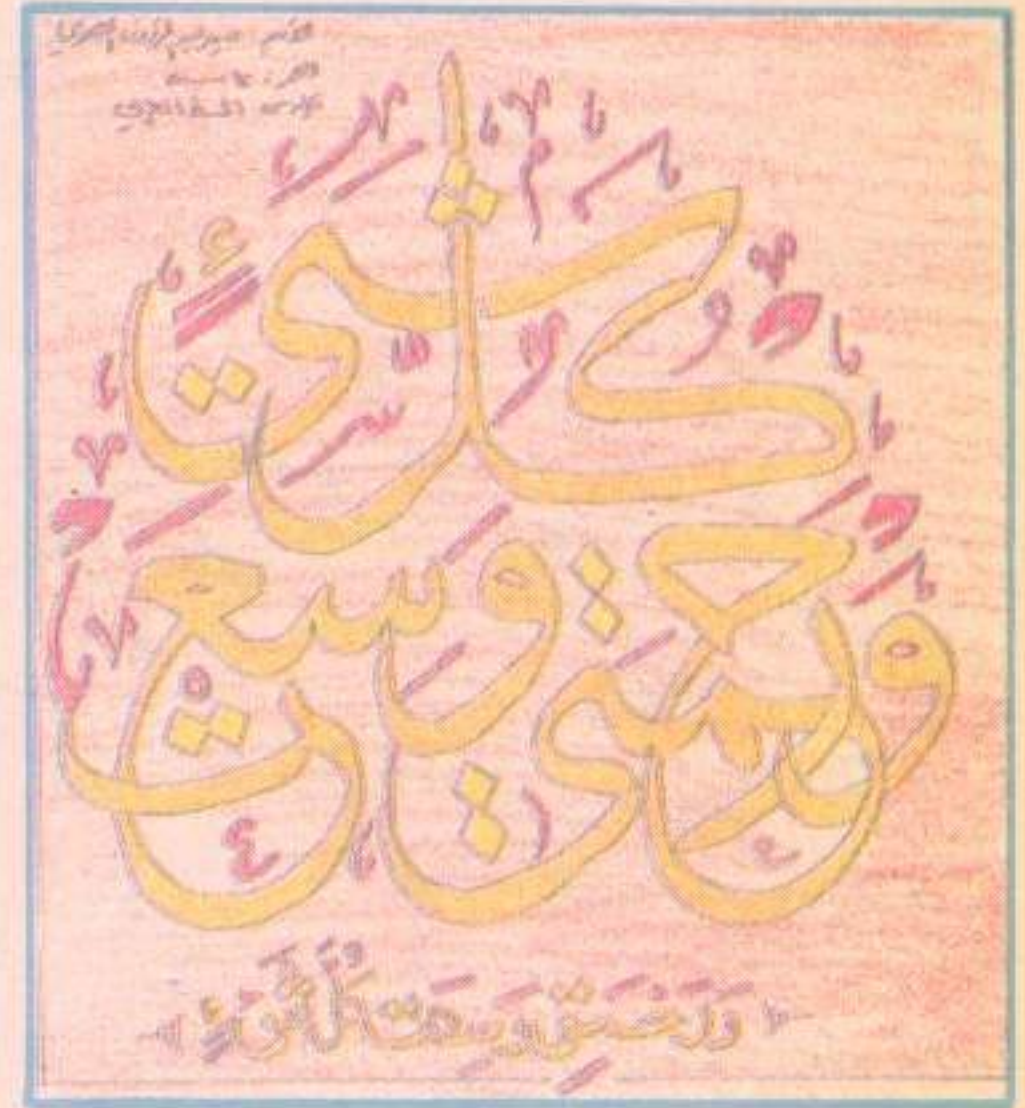 الاسم
ورحمتي وسعت
كل شيء
وَرَحْمَتِي وَسِعَتْ كُلَّ شَيْءٍ